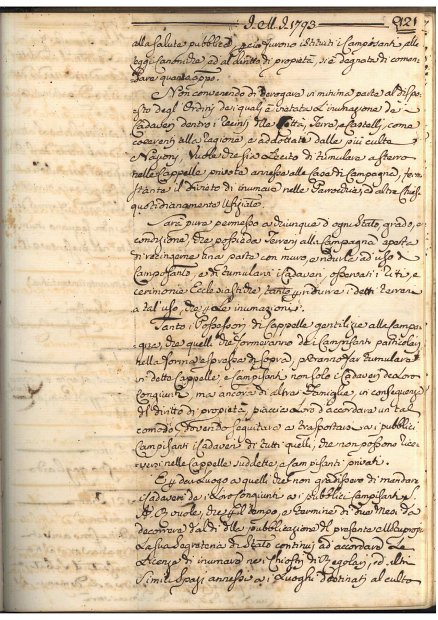 I. M. I. 1793
121
alla Salute pubblica, per cui furono istituti i Campisanti, alle
leggi canoniche ed al diritto di proprietà, si è degnata di coman-
dare quanto appo.
Non convenendo di derogare in minima parte al dispo-
sto degl' Ordini de quali è vietata l'inumazione de
Cadaveri dentro i recinti delle Città, Terre, e Castelli, come
coerenti alla ragione, e adottate dalle più culte
Nazioni, Vuole che sia lecito di tumulare a sterro
nelle Cappelle private annesse alle Case di Campagna, fermo
stante il divieto di inumare nelle Parrocchie, ed altre Chiese
quotidianamente Ufiziate.
Sarà pure permesso a chiunque d'ogni stato, grado, e
condizione, che possieda Terreni alla Campagna aperta
di recingerne una parte con muro, e ridurle ad uso di
Camposanto, e di tumularvi i Cadaveri, osservati i riti, e
cerimonie Ecclesiastiche, tanto per ridurre i detti terreni
a tal' uso, che per le inumazioni.
Tanto i Possessori di Cappelle gentilizie alla Campa-
gna, che quelli che formeranno de i Campisanti particolari
nella forma espressa di sopra, potranno far tumulare
in dette Cappelle, e Campisanti non solo i Cadaveri de loro
Congiunti, ma ancora di altre Famiglie, in conseguenza
del diritto di proprietà, piaccia loro d'accordare un tal
comodo, dovendo seguitare a trasportarsi a i pubblici
Campisanti i Cadaveri di tutti quelli, che non possono rice-
versi nelle Cappelle suddette, e Campisanti privati.
E per dar luogo a quelli che non gradissero di mandare
i Cadaveri de i loro Congiunti a i pubblici Campisanti S.
A. R. vuole, che per il tempo, e termine di due Mesi da
decorrere dal dì della pubblicazione del presente
La sua Segreteria di Stato continui ad accordare le
Licenze di inumare nei Chiostri di Regolari, ed altri
Simili Spazi annessi a i Luoghi destinati al culto